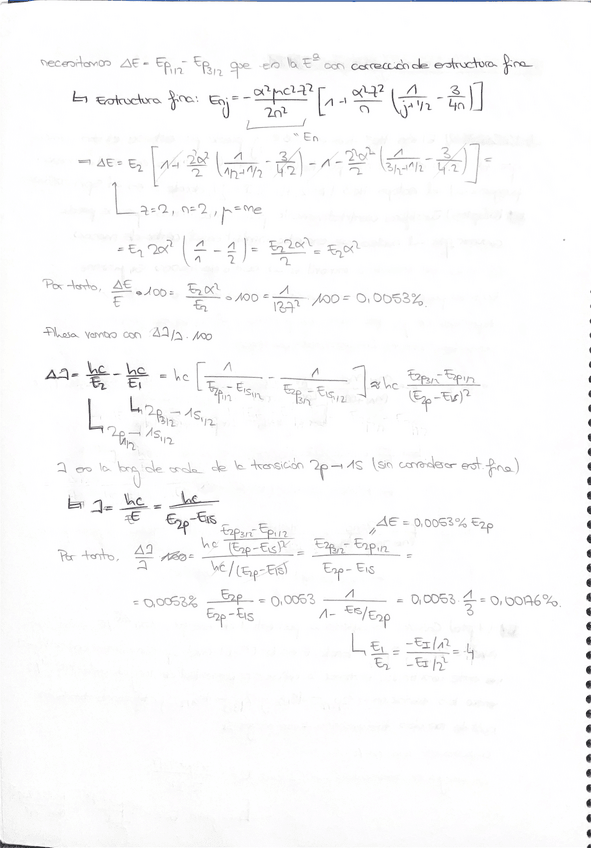 necesitamos ΔE = Ep1/2 - Ep3/2 que es la Eª con corrección de estructura fina
↳ Estructura fina: Enj = - α²μc²z²/2n² [1 + α²z²/n (1/(j+1/2) - 3/4n)]
= En
⇒ ΔE = E2 [1 + 2²α²/2 (1/(1/2+1/2) - 3/4·2) - 1 - 2²α²/2 (1/(3/2+1/2) - 3/4·2)] =
z=2, n=2, μ=me
= E2 2α² (1/1 - 1/2) = E2 2α²/2 = E2α²
Por tanto, ΔE/E · 100 = E2α²/E2 · 100 = 1/137² 100 = 0,0053%
Ahora vamos con Δλ/λ · 100
Δλ = hc/E2 - hc/E1 = hc [1/(E2p1/2 - E1S1/2) - 1/(E2p3/2 - E1S1/2)] ≈ hc (E2p3/2 - E2p1/2)/(E2p - E1S)²
↳ 2p3/2 → 1S1/2
↳ 2p1/2 → 1S1/2
λ es la long de onda de la transición 2p → 1S (sin considerar est. fina)
↳ λ = hc/E = hc/(E2p - E1S)
ΔE = 0,0053% E2p
Por tanto, Δλ/λ 100 = hc (E2p3/2 - Ep1/2)/(E2p - E1S)² / hc/(E2p - E1S) = (E2p3/2 - E2p1/2)/(E2p - E1S) =
= 0,0053% E2p/(E2p - E1S) = 0,0053 1/(1 - E1S/E2p) = 0,0053 · 1/3 = 0,0076%.
↳ E1/E2 = -EI/1²/-EI/2² = 4